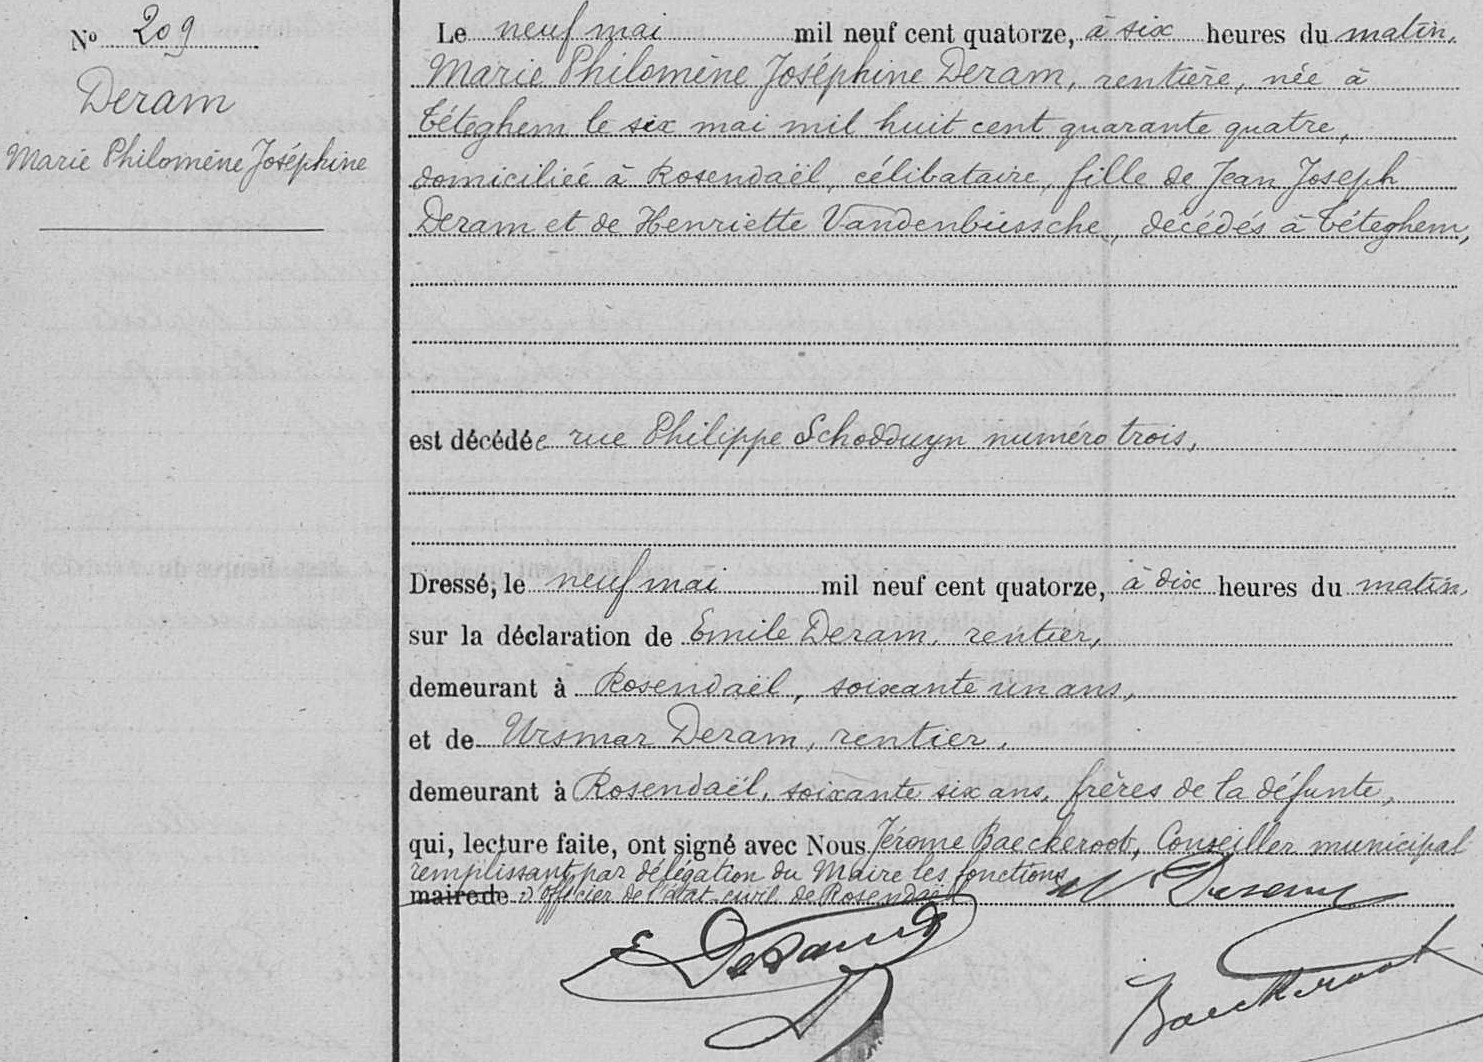 N° 209
Deram
Marie Philomène Joséphine
Le neuf mai mil neuf cent quatorze, à six heures du matin,
Marie Philomène Joséphine Deram, rentière, née à
Téteghem le six mai mil huit cent quarante quatre,
domiciliée à Rosendaël, célibataire, fille de Jean Joseph
Deram et de Henriette Vandenbussche, décédés à Téteghem,
est décédée rue Philippe Schodduyn numéro trois,
Dressé, le neuf mai mil neuf cent quatorze, à dix heures du matin,
sur la déclaration de Emile Deram, rentier,
demeurant à Rosendaël, soixante un ans,
et de Ursmar Deram, rentier,
demeurant à Rosendaël, soixante six ans, frères de la défunte,
qui, lecture faite, ont signé avec Nous Jérome Baeckeroot, Conseiller municipal
remplissant par délégation du Maire les fonctions
maire de d'officier de l'état-civil de Rosendaël
U Deram
E Deram
Baeckeroot